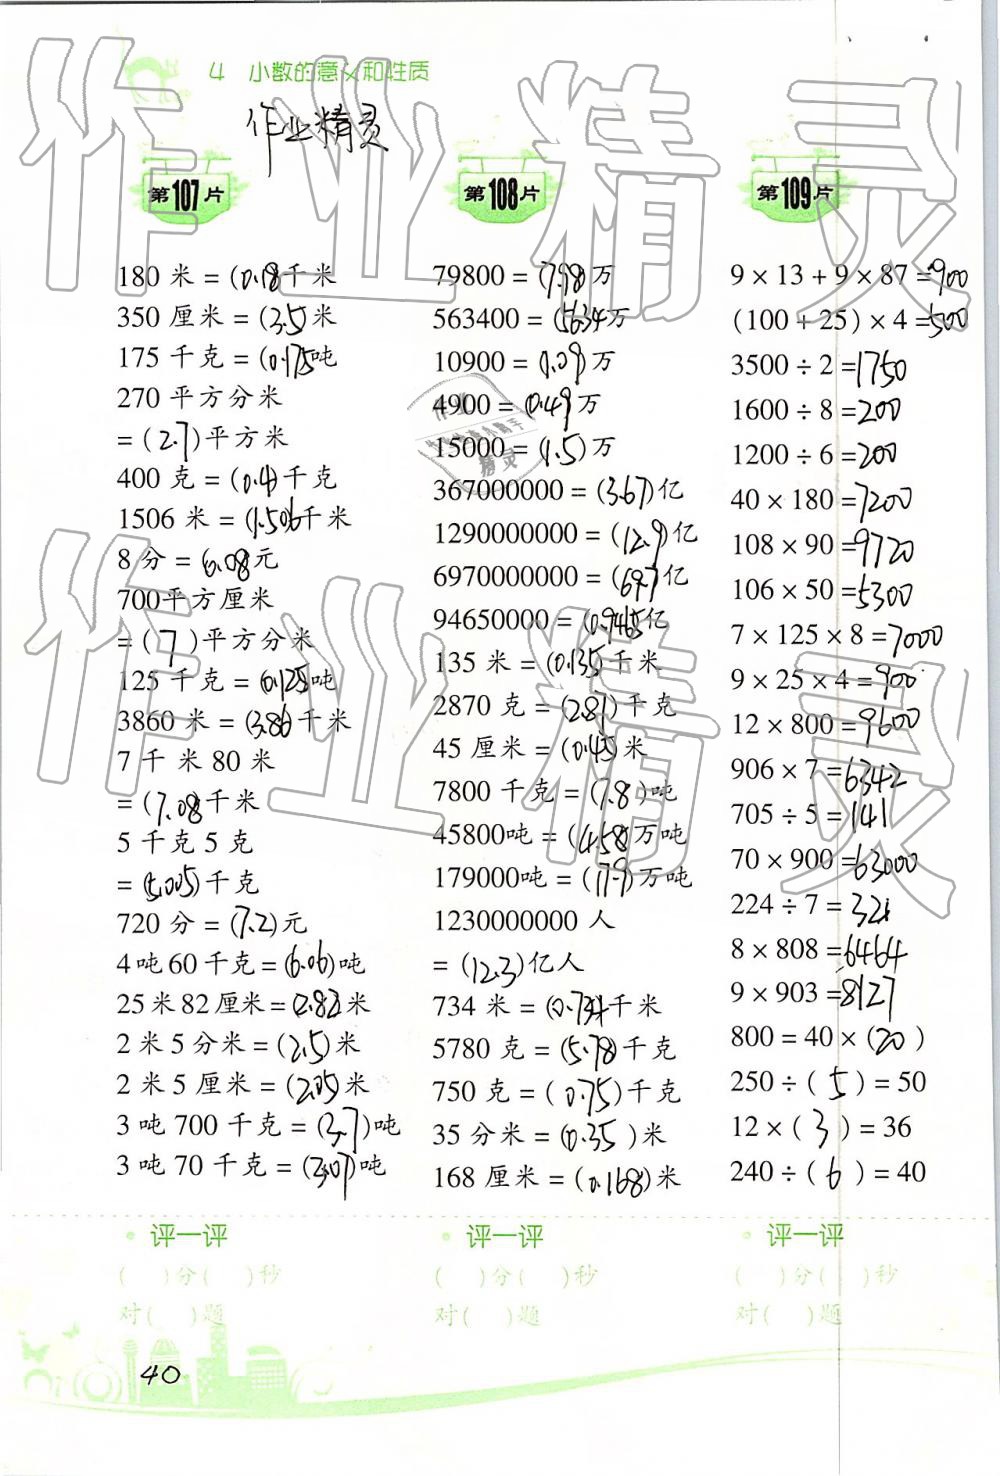 4 小数的意义和性质
作业精灵
第107片
180 米 = (0.18千米
350 厘米 = (3.5)米
175 千克 = (0.175吨
270 平方分米
= (2.7)平方米
400 克 = (0.4)千克
1506 米 = (1.506千米
8 分 = 0.08元
700平方厘米
= (7)平方分米
125 千克 = 0.125吨
3860 米 = (3.86)千米
7 千 米 80 米
= (7.08千米
5 千克 5 克
= (5.005)千克
720 分 = (7.2)元
4吨60千克 = (6.06)吨
25米82厘米 = 0.82米
2 米 5 分米 = (2.5)米
2 米 5 厘米 = (2.05米
3 吨 700 千克 = (3.7)吨
3 吨 70 千克 = (3.07)吨
评一评
( )分( )秒
对( )题
第108片
79800 = (7.98)万
563400 = (56.34万
10900 = (1.09)万
4900 = (0.49万
15000 = (1.5)万
367000000 = (3.67)亿
1290000000 = (12.9)亿
6970000000 = (69.7亿
94650000 = (0.9465亿
135 米 = (0.135千米
2870 克 = (2.87)千克
45 厘米 = (0.45)米
7800 千克 = (7.8)吨
45800吨 = (4.58万吨
179000吨 = (17.9)万吨
1230000000 人
= (12.3)亿人
734 米 = (0.734千米
5780 克 = (5.78千克
750 克 = (0.75)千克
35 分米 = (0.35 )米
168 厘米 = (0.168)米
评一评
( )分( )秒
对( )题
第109片
9 × 13 + 9 × 87 = 900
(100 + 25) × 4 = 500
3500 ÷ 2 = 1750
1600 ÷ 8 = 200
1200 ÷ 6 = 200
40 × 180 = 7200
108 × 90 = 9720
106 × 50 = 5300
7 × 125 × 8 = 7000
9 × 25 × 4 = 900
12 × 800 = 9600
906 × 7 = 6342
705 ÷ 5 = 141
70 × 900 = 63000
224 ÷ 7 = 32
8 × 808 = 6464
9 × 903 = 8127
800 = 40 × (20 )
250 ÷ ( 5 ) = 50
12 × ( 3 ) = 36
240 ÷ ( 6 ) = 40
评一评
( )分( )秒
对( )题
40
作业精灵
作业精灵